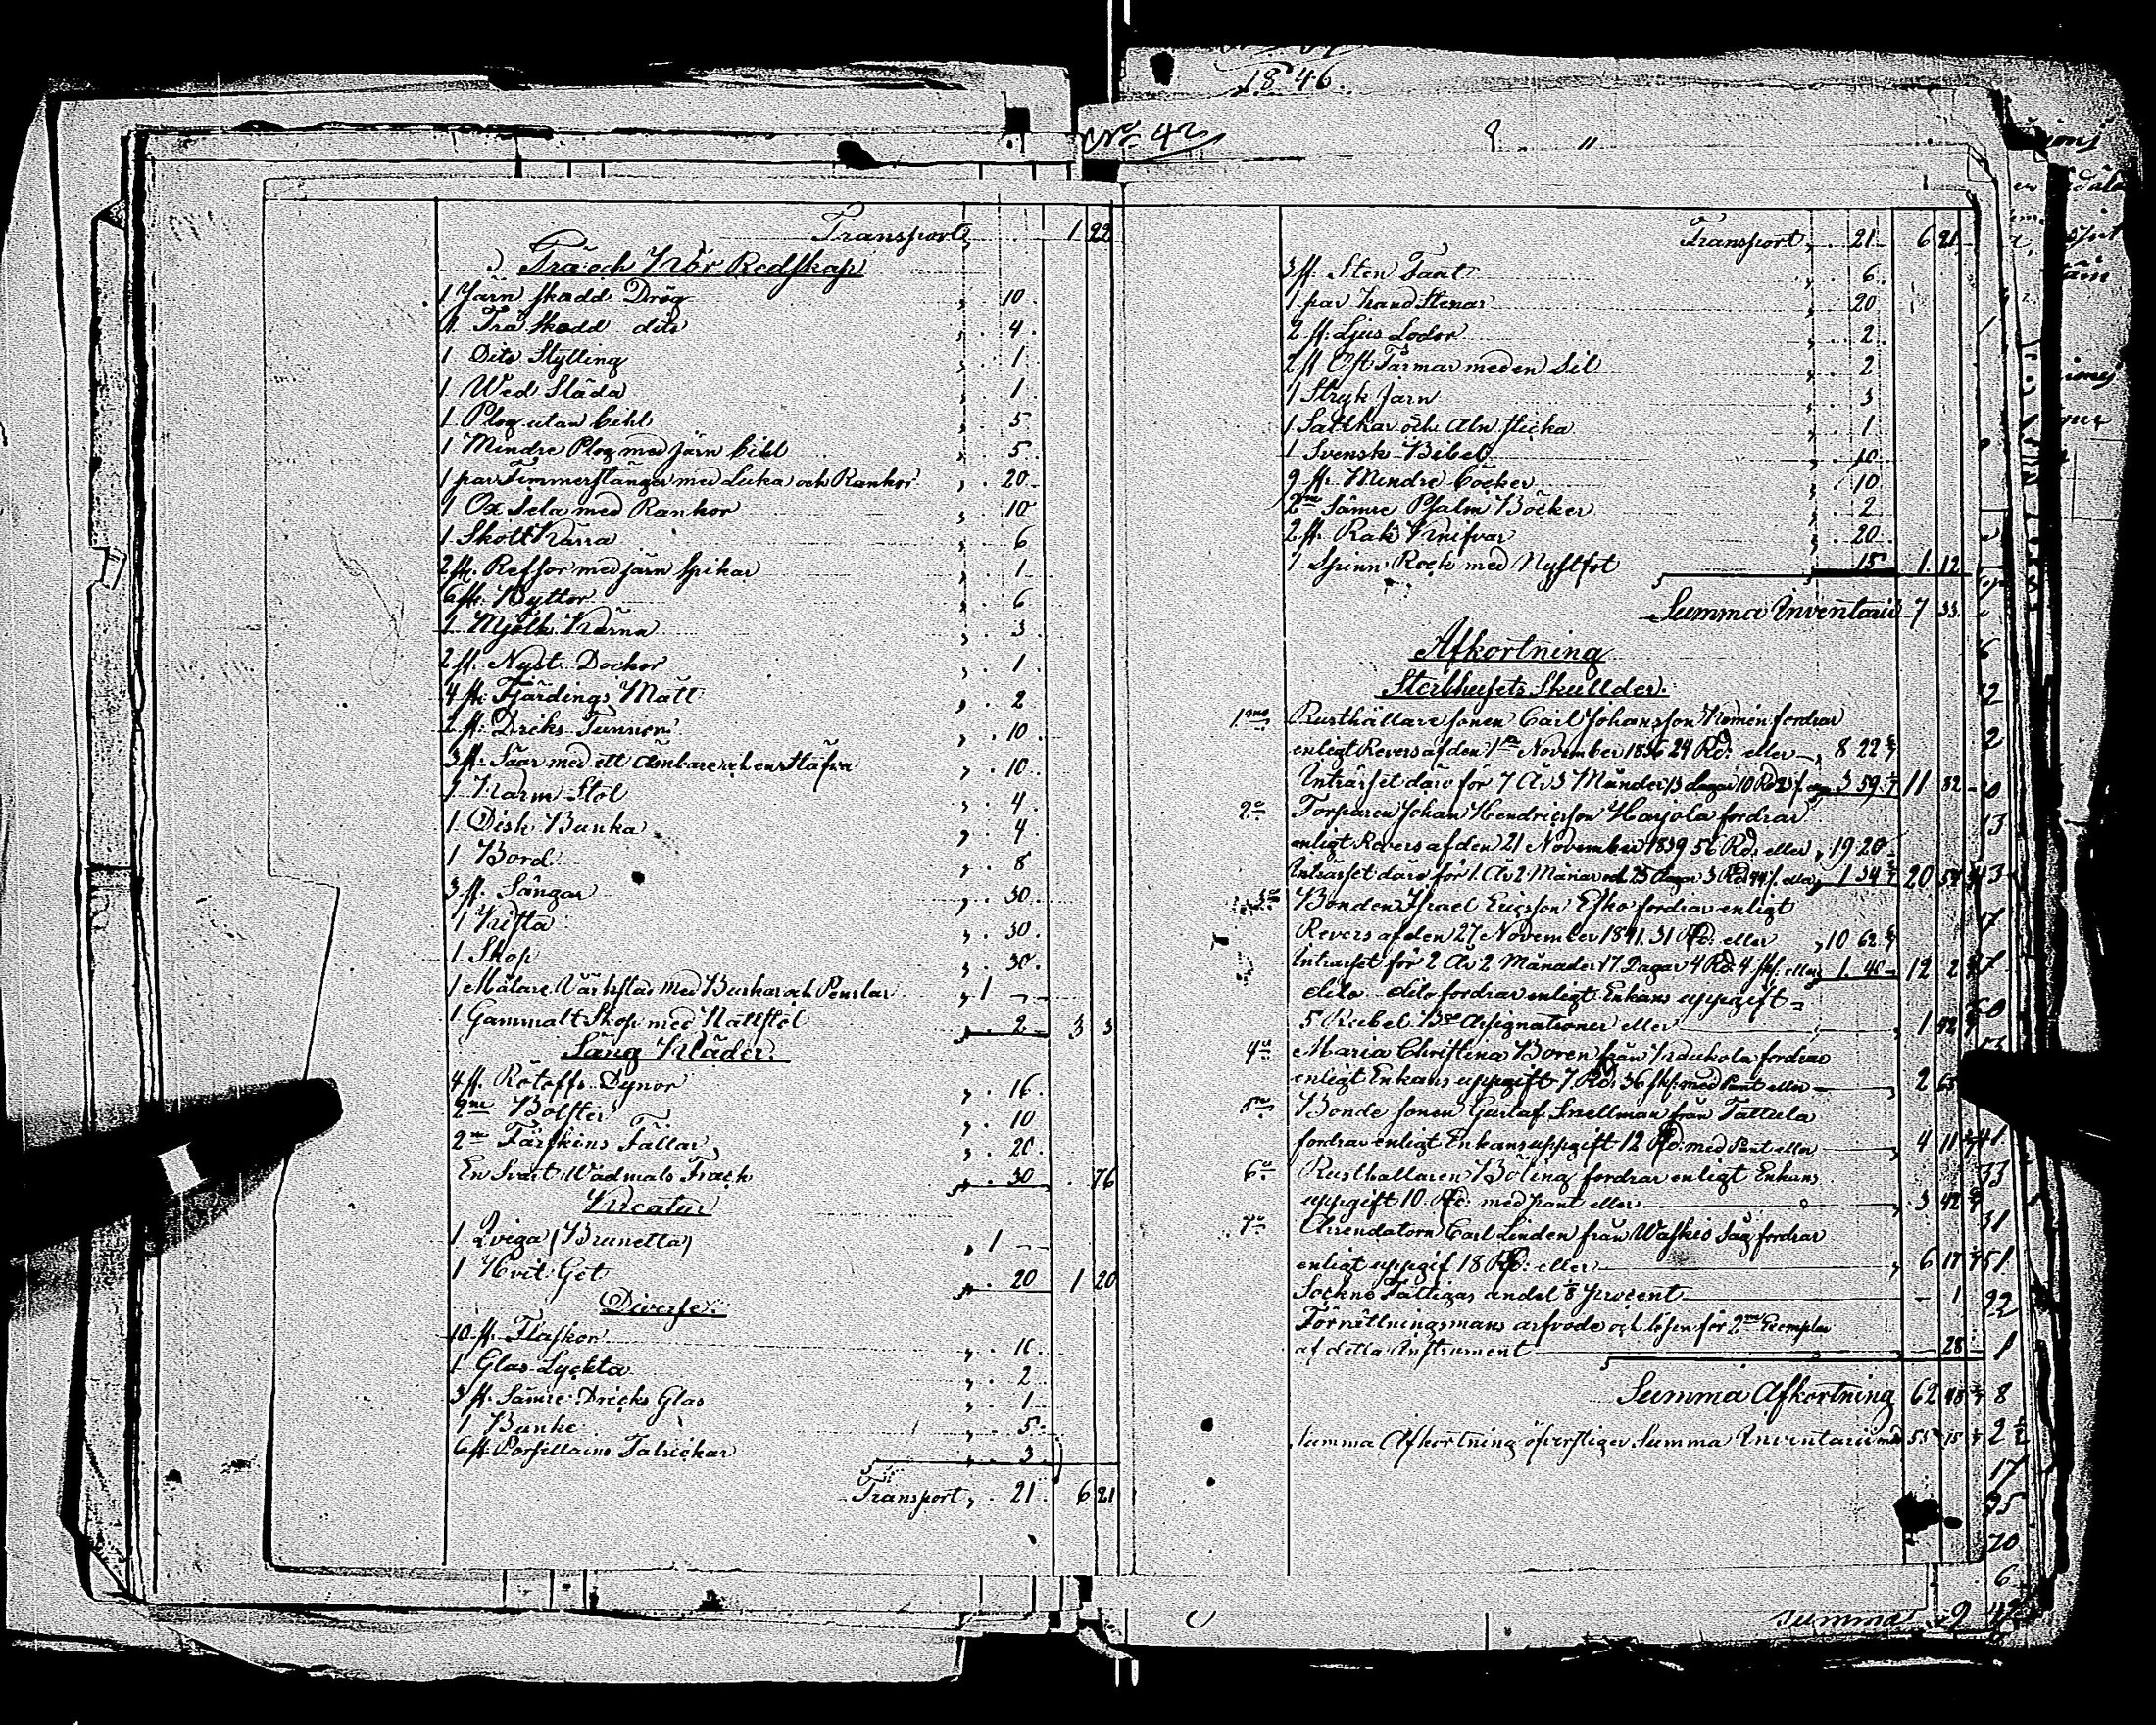 Transport 1 22
Trä och Kör Redskap
1 Järn skodd Drög 10
1 Trä Skodd dito 4
1 Dito Stylting 1
1 Wed Släda 1
1 Plog utan bihl 5
1 Mindre Plog med järn bihl 5
1 par Timmerstänger med Luka och Rankor 20
1 Ox Sela med Rankor 10
1 Skott Kärra 6
2 st. Ressor med järn spikar 1
6 st. Byttor 6
1 Mjölk Kärna 3
2 st. Nyst Dockor 1
4 st. Fjärdings Mått 2
2 st. Dricks Tunnor 10
3 st. Såar med ett Ämbare och en Stäfva 10
1 Karm Stol 4
1 Disk Bunka 4
1 Bord 8
3 st. Sängar 30
1 Kista 30
1 Skåp 30
1 Målare Värkstad med Burkar och Penslar 1 —
1 Gammalt Skåp med Nattstol 2 3 3
Säng Kläder
4 st. Dynor 16
2ne Bolster 10
2ne Fårskins Fällar 20
En Svart Wadmals Frack 30 76
Kreatur
1 Qviga (Brunetta) 1 —
1 Hvit Get 20 1 20
Diverse
10 st. Flaskor 10
1 Glas Lyckta 2
3 st. Sämre Dricks Glas 1
1 Bunke 5
6 st. Porsillains Talrickar 3
Transport 21 6 21
1846.
No 42
Transport 21 6 21
3 st. Sten Faat 6
1 par hand Stenar 20
2 st. Ljus Lodor 2
2 st Ost Färmar med en Sil 2
1 Stryk Jarn 3
1 Saltkar och Aln sticka 1
1 Svensk Bibel 10
9 st. Mindre böcker 10
2ne Sämre Psalm Böcker 2
2 st. Rak Knifvar 20
1 Spinn Rock med Nystfot 15 1 12
Summa Inventarii 7 33
Afkortning
Sterbhusets Skullder
1mo Rusthållare sonen Carl Johansson fordrar
enligt Revers af den 1ta November 1836 24 Rd: eller 8 22 6/7
Inträsset därå för 7 År 3 Månader 13 dagar 10 Rd 3 59 11 82
2o Torparen Johan Hendricsson Harjola fordrar
enligt Revers af den 21 November 1839 56 Rd: eller 19 20
Intrasset därå för 1 År 2 Månar och 25 Dagar 3 Rd eller 1 34 20 54
3o Bonden Israel Ericsson Esko fordrar enligt
Revers af den 27 November 1841 31 Rd: eller 10 62 6/7
Intrasset för 2 År 2 Månader 17 Dagar 4 Rd: 4 sk. eller 1 40 12 2
dito dito fordrar enligt Enkans uppgift
5 Rubel Bco Assignationer eller 1 42
4o Maria Christina Boren från fordrar
enligt Enkans uppgift 7 Rd: 36 sk: med Pant eller 2 65
5o Bonde sonen Gustaf Snellman från Tattula
fordrar enligt Enkans uppgift 12 Rd: med Pant eller 4 11
6o Rusthållaren Böling fordrar enligt Enkans
uppgift 10 Rd: med pant eller 3 42
7o Arrendatorn Carl Linden från Waskis Såg fordrar
enligt uppgif 18 Rd: eller 6 17
Sockne Fattigas andel 1/8 Procent — 1
Förrättningsmans arfvode och lösen för 2ne Exemplar
af detta Instrument 28
Summa Afkortning 62 48
Summa Afkortning öfverstiger Summa Inventarii med 55 15
summa